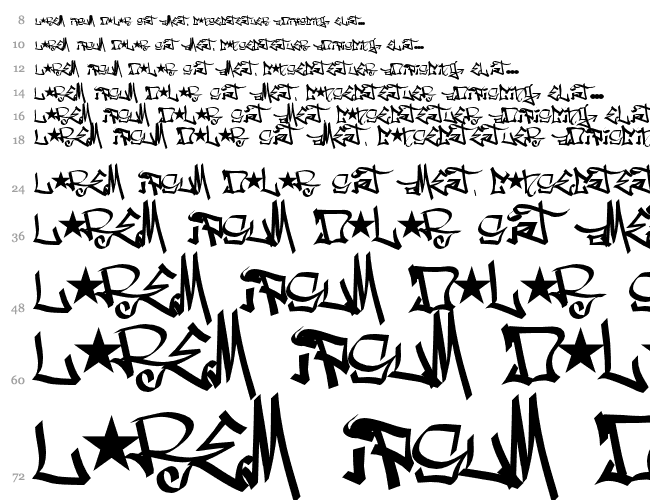 8 L★REM IPSUM D★L★R SIT AMET, C★NSECTETUER ADIPISCING ELIT...
10 L★REM IPSUM D★L★R SIT AMET, C★NSECTETUER ADIPISCING ELIT...
12 L★REM IPSUM D★L★R SIT AMET, C★NSECTETUER ADIPISCING ELIT...
14 L★REM IPSUM D★L★R SIT AMET, C★NSECTETUER ADIPISCING ELIT...
16 L★REM IPSUM D★L★R SIT AMET, C★NSECTETUER ADIPISCING ELIT
18 L★REM IPSUM D★L★R SIT AMET, C★NSECTETUER ADIPISCIN
24 L★REM IPSUM D★L★R SIT AMET, C★NSECTET
36 L★REM IPSUM D★L★R SIT AME
48 L★REM IPSUM D★L★R S
60 L★REM IPSUM D★L
72 L★REM IPSUM D